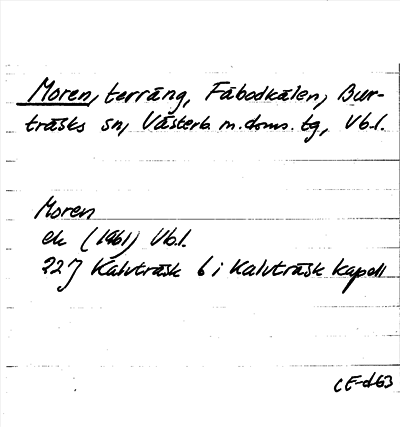 Moren, terräng, Fäbodkälen, Bur-
träsks sn, Västerb. n. doms. tg, Vb.l.
Moren
ek (1961) Vb.l.
22J Kalvträsk 6 i Kalvträsk kapell
CE-d63